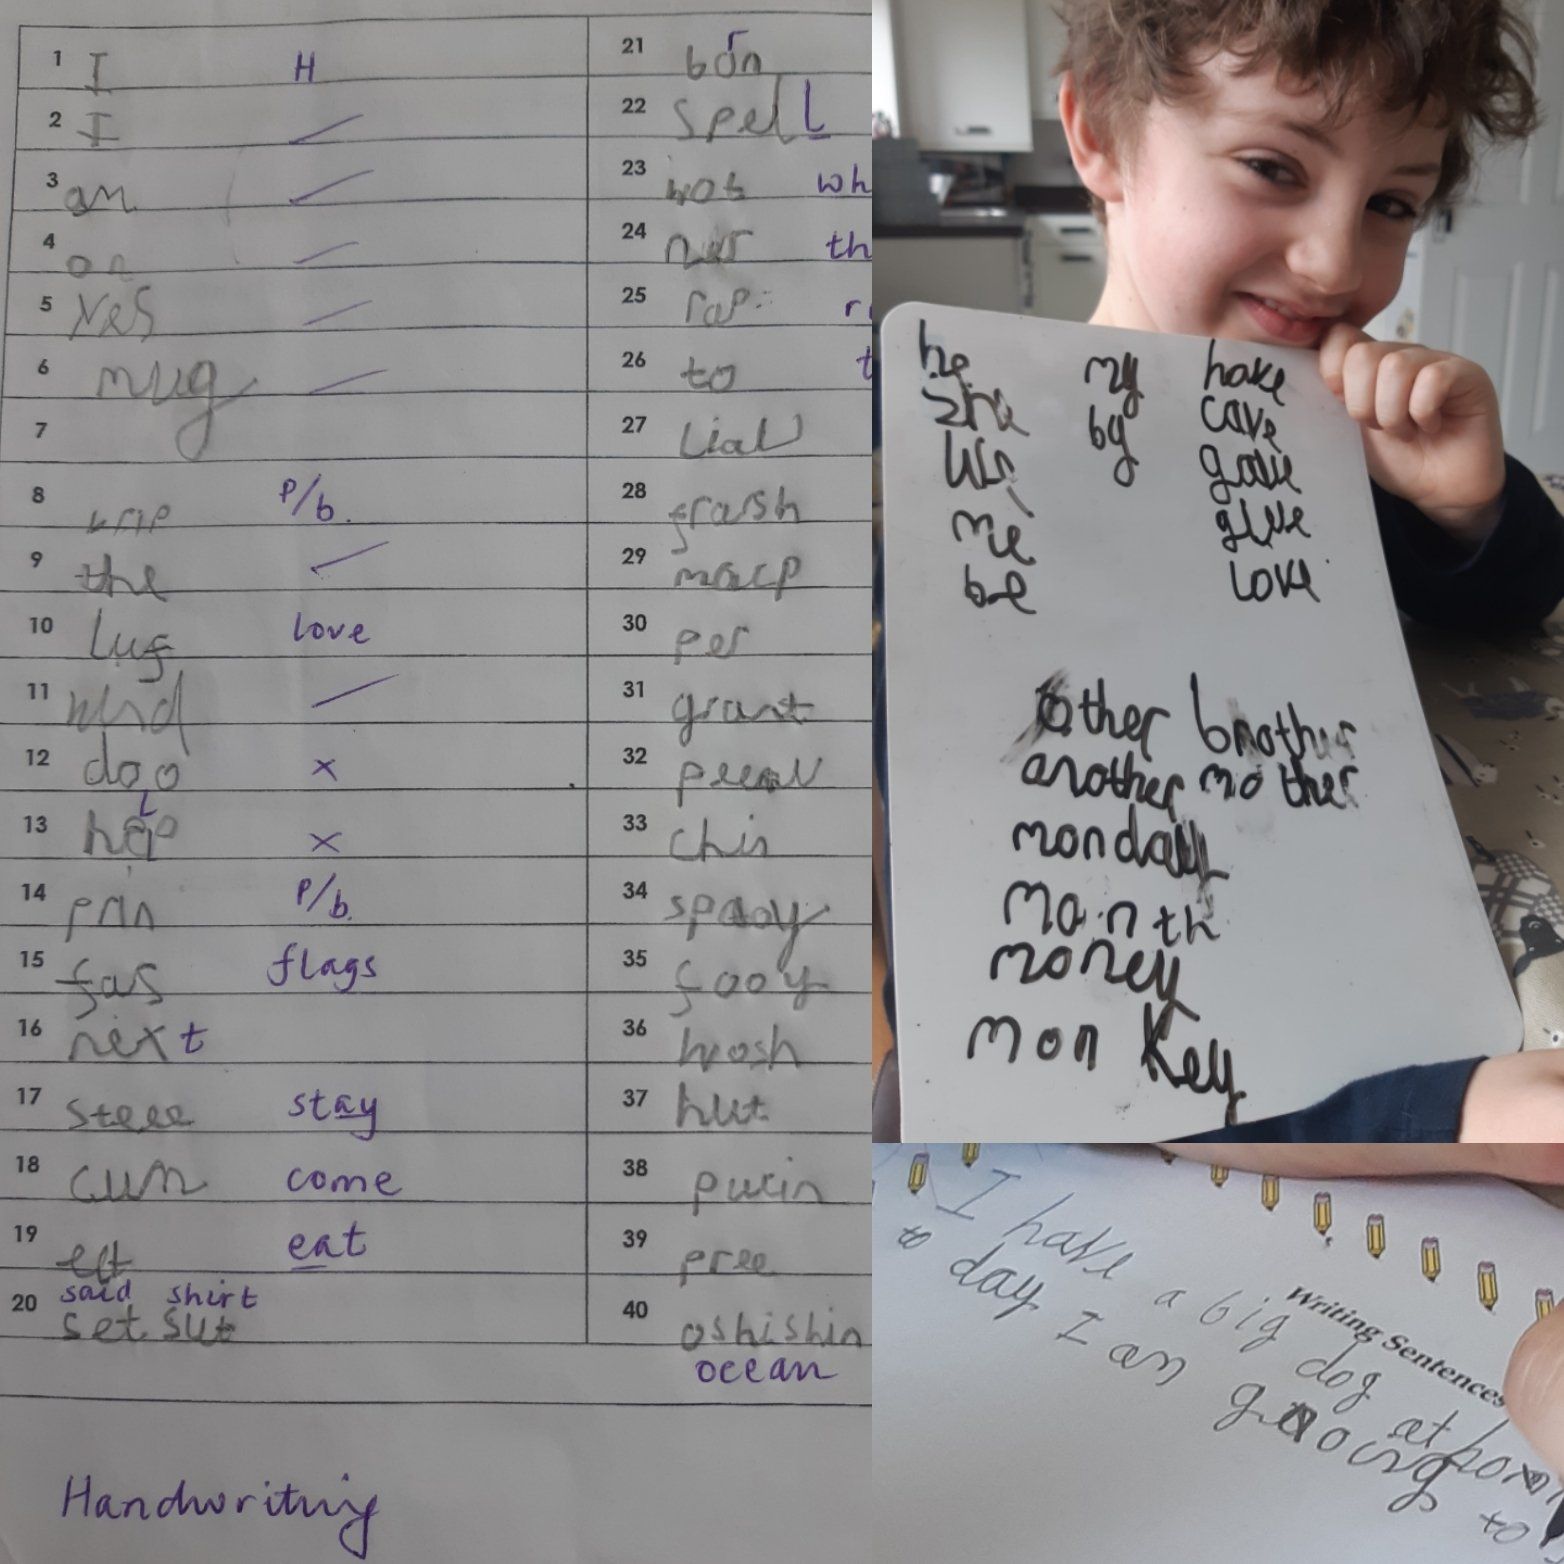 1 I H
2 I
3 am
4 on
5 Yes
6 mug
7
8 P/b.
9 the
10 Luf love
11
12 doo x
13 hep L x
14 P/b.
15 fas flags
16 nex t
17 steee stay
18 cum come
19 eat
said shirt
20 set sut
21 bon r
22 spel L
23 wot wh
24 th
25 rap r
26 to t
27
28 frarsh
29 marcp
30 per
31 grant
32
33 chin
34
35 fooy
36 wosh
37 hut
38
39 pree
40 oshishin
ocean
Handwriting
he my have
she by cave
gave
me give
be love
other brother
another mother
monday
month
money
mon key
Writing Sentences
I have a big dog at
to day I am to